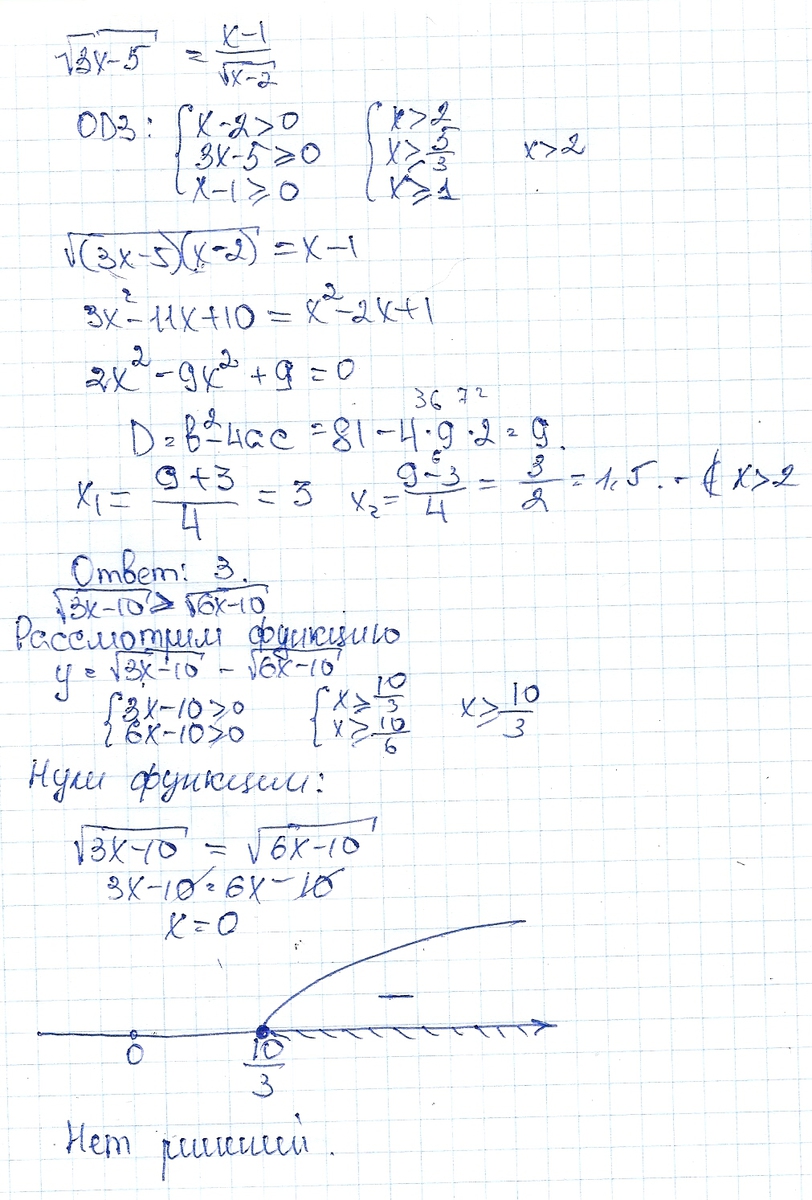 √(3x-5) = (x-1)/√(x-2)
ОДЗ: { x-2>0 { x>2
3x-5⩾0 x⩾5/3 x>2
x-1⩾0 x⩾1
√((3x-5)(x-2)) = x-1
3x²-11x+10 = x²-2x+1
2x²-9x²+9=0
36 72
D=b²-4ac=81-4·9·2=9.
x₁ = (9+3)/4 = 3 x₂= (9-3)/4 = 3/2 = 1,5. - ∉ x>2
6
Ответ: 3.
√(3x-10) ⩾ √(6x-10)
Рассмотрим функцию
y = √(3x-10) - √(6x-10)
{ 3x-10⩾0 { x⩾10/3 x⩾10/3
6x-10⩾0 x⩾10/6
Нули функции:
√(3x-10) = √(6x-10)
3x-10=6x-10
x=0
—
0 10/3
Нет решений.